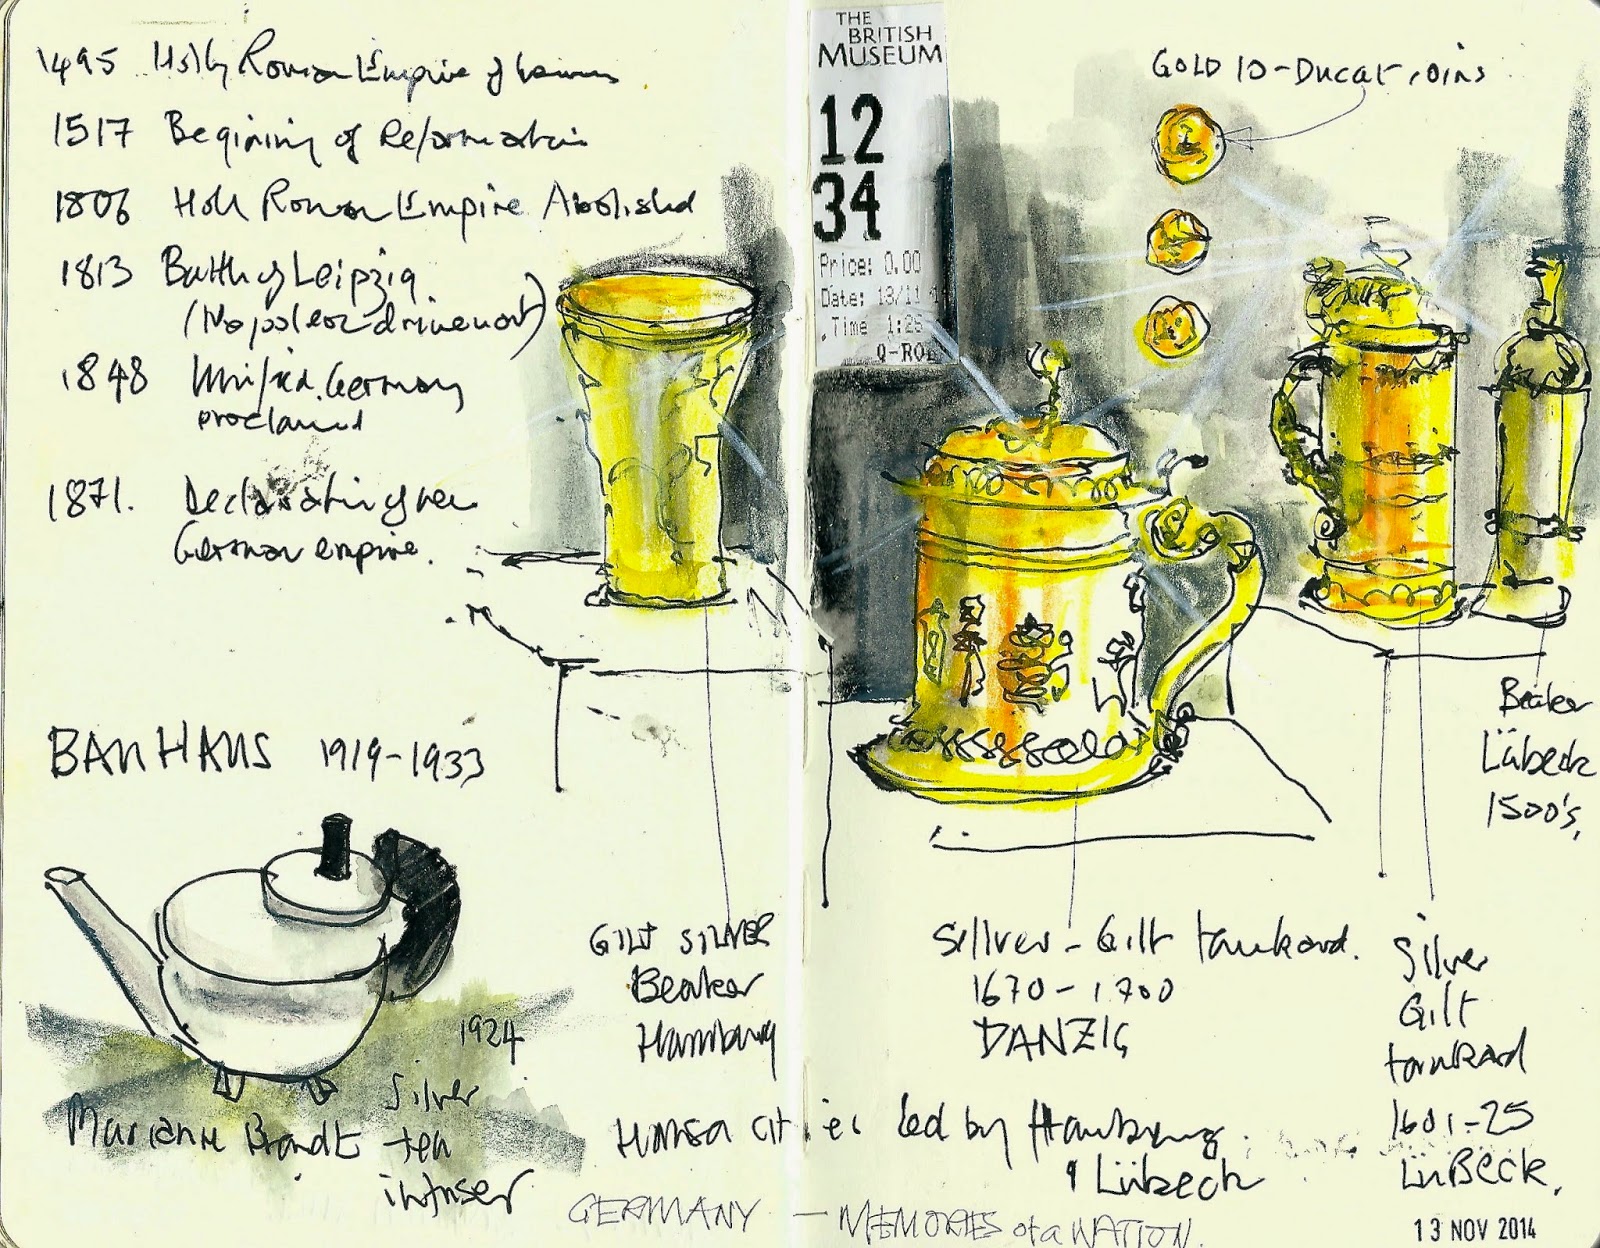 1495 Holy Roman Empire of
1517 Begining of Reformation
1806 Holy Roman Empire Abolished
1813 Battle of Leipzig
(Napoleon driven out)
1848 Unified Germany
proclaimed
1871. Declaration of new
German empire.
BAUHAUS 1919-1933
1924
Silver
Marianne Brandt tea
infuser
GILT SILVER
Beaker
Hamburg
THE
BRITISH
MUSEUM
12
34
Price: 0.00
Date: 13/11
Time 1:25
GOLD 10-Ducat coins
Beaker
Lübeck
1500's,
Sillver-Gilt tankard.
1670-1700
DANZIG
Silver
Gilt
tankard
1601-25
LüBeck.
Hansa cities led by Hamburg
& Lübeck
GERMANY - MEMORIES of a NATION.
13 NOV 2014